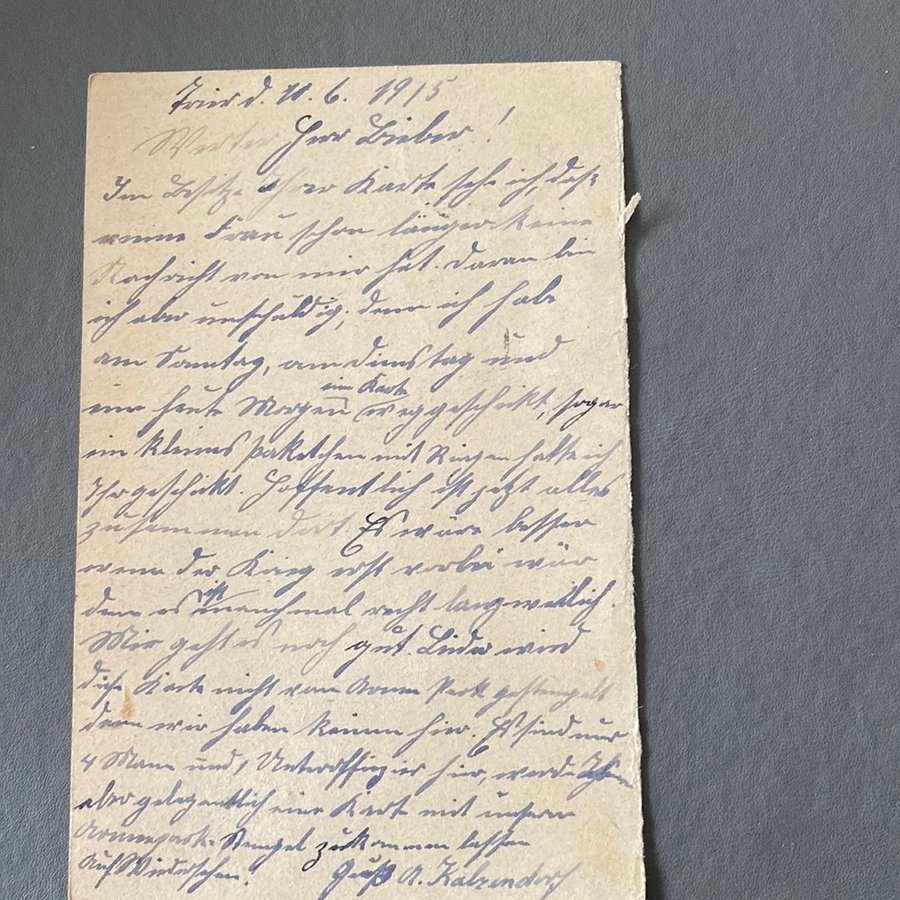 Trier d. 11. 6. 1915
Werter Herr Bieber!
Im Besitze Ihrer Karte sehe ich, daß
meine Frau schon länger keine
Nachricht von mir hat. Daran bin
ich aber unschuldig, denn ich habe
am Sonntag, am Dienstag und
heute Morgen eine Karte weggeschickt, sogar
ein kleines Paketchen mit Ringen hatte ich
Ihr geschickt. Hoffentlich ist jetzt alles
zusammen dort. Es wäre besser
wenn der Krieg erst vorbei wär
denn es ist manchmal recht langweilich.
Mir geht es noch gut. Leider wird
diese Karte nicht vom Armee Park gestempelt
denn wir haben keinen hier. Es sind nur
4 Mann und 1 Unteroffizier hier, werde Ihnen
aber gelegentlich eine Karte mit unserm
Armeepark-Stempel zukommen lassen
Auf Wiedersehen! Gruß A.